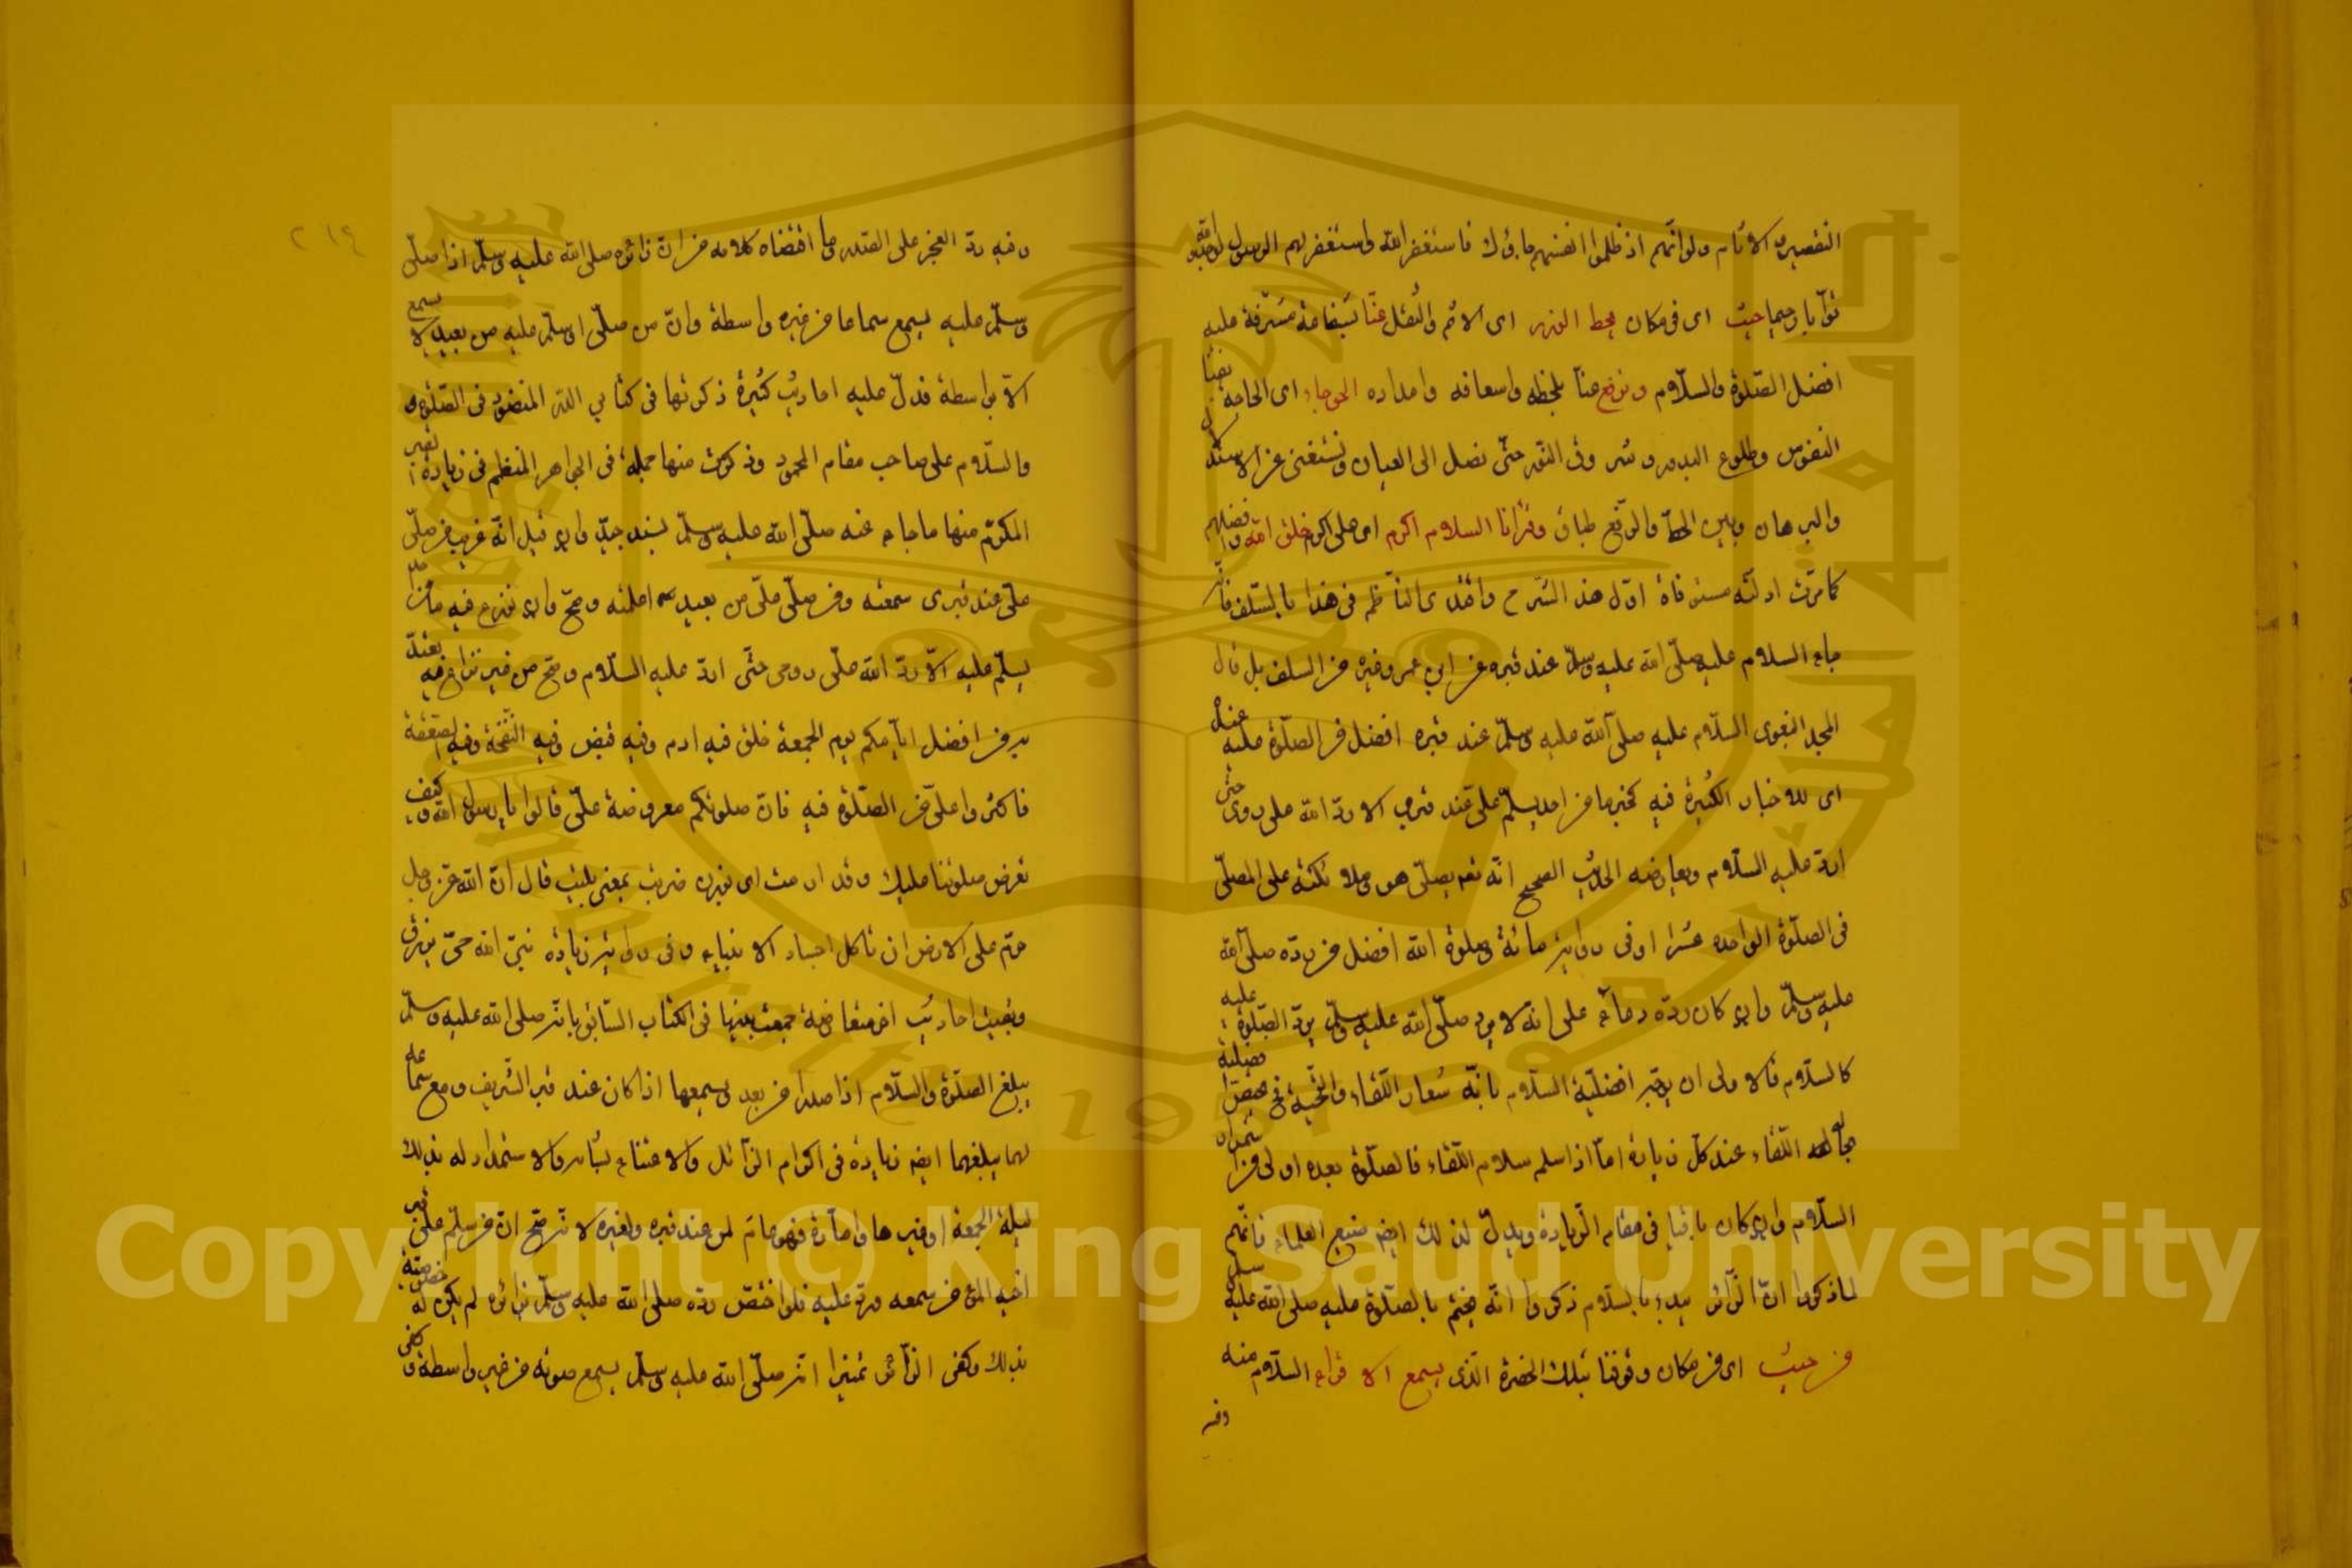 التقصير والآثام ولو انهم اذ ظلموا انفسهم جاؤك فاستغفروا الله واستغفر لهم الرسول لوجدوا الله
توابا رحيما حيث اى فى مكان يحط الوزر اى الاثم والثقل عنا بشفاعة مشرفه عليه
افضل الصلوة والسلام وترفع عنا بلحظه واسعافه وامداده الحوجاء اى الحاجة
النفوس وطلوع البدور حتى نصل الى العيان ونستغنى عن الاستدلال
والبرهان وبين الحط والرفع طباق وقرأنا السلام اكرم اى على اكرم خلق الله وافضلهم
كما مرت ادلته مستوفاة اول هذا الشرح واقتدى الناظم فى هذا بالسلف فانه
جاء السلام عليه صلى الله عليه وسلم عند قبره عن ابن عمر وغيره من السلف بل قال
المجد اللغوى السلام عليه صلى الله عليه وسلم عند قبره افضل من الصلوة عليه عنده
اى للاخبار الكثيرة فيه كخبر ما من احد يسلم على عند قبرى الا رد الله على روحى حتى
ارد عليه السلام ويعارضه الحديث الصحيح انه تعالى يصلى هو وملائكته على المصلى
فى الصلوة الواحدة عشرا وفى رواية مائة وصلوة الله افضل من رده صلى الله
عليه وسلم وان كان رده دعاء على انه لا يرد صلى الله عليه وسلم يرد الصلوة عليه
كالسلام فالاولى ان يوجه افضلية السلام بانه شعار اللقاء والتحية فخص فضيلة
بحالة اللقاء عند كل زيارة اما اذا سلم سلام اللقاء فالصلوة بعده اولى من استمرار
السلام وان كان باقيا فى مقام الزيارة ويدل لذلك ايضا صنيع العلماء فانهم
لما ذكروا ان الزائر يبدء بالسلام ذكروا انه يختم بالصلوة عليه صلى الله عليه وسلم
من حيث اى من مكان وقوفنا بتلك الحضرة الذى يسمع الاقراء السلام منه
وفيه
وفيه رد العجز على الصدر وما اقتضاه كلامه من ان زائره صلى الله عليه وسلم اذا صلى
وسلم عليه يسمع سماعا من غير واسطة وان من صلى او سلم عليه من بعيد لا يسمع
الا بواسطة فدل عليه احاديث كثيرة ذكرتها فى كتابى الدر المنضود فى الصلوة
والسلام على صاحب مقام المحمود وذكرت منها جملة فى الجوهر المنظم فى زيارة القبر
المكرم منها ما جاء عنه صلى الله عليه وسلم بسند جيد وان قيل انه غريب من صلى
على عند قبرى سمعته ومن صلى على من بعيد اعلمته وصح وان نوزع فيه ما من
يسلم عليه الا رد الله على روحى حتى ارد عليه السلام وصح من غير نزاع فيه
من افضل ايامكم يوم الجمعة خلق فيه ادم وفيه قبض وفيه النفخة وفيه الصعقة
فاكثروا على من الصلوة فيه فان صلوتكم معروضة على قالوا يا رسول الله وكيف
تعرض صلوتنا عليك وقد ارمت اى بوزن ضربت بمعنى بليت قال ان الله عز وجل
حرم على الارض ان تاكل اجساد الانبياء وفى رواية زيادة نبى الله حى يرزق
وبقيت احاديث اخر متعارضة جمعت بينها فى الكتاب السابق بانه صلى الله عليه وسلم
يبلغ الصلوة والسلام اذا صدرا من بعد ويسمعهما اذا كان عند قبره الشريف ومع سماعه
لهما يبلغهما ايضا زيادة فى اكرام الزائر والاعتناء بشانه والاستمداد له بذلك
ليلة الجمعة او غيرها واما رده فهو عام لمن عند قبره ولغيره لانه صح ان من سلم على قبر
اخيه المؤمن سمعه ورد عليه فلو اختص رده صلى الله عليه وسلم بزائره لم يكن له خصوصية
بذلك وكفى الزائر تميزا انه صلى الله عليه وسلم يسمع صوته من غير واسطة وكفى